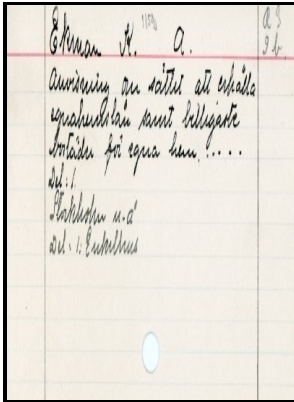 Ekman K. A.
A 3
9 b.
Anvisning om sättet att erhålla
egnahemslån samt billigaste
bostäder för egna hem.....
Del: 1.
Stockholm u.å
Del. 1: Enkelhus